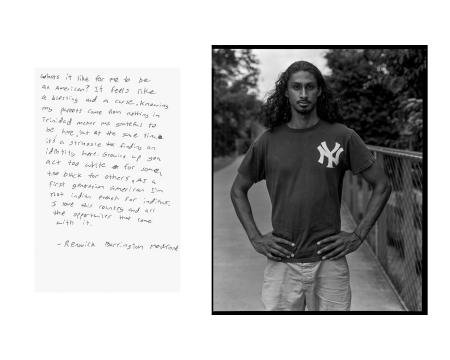 Whats it like for me to be
an American? It feels like
a blessing and a curse. knowing
my parents came from nothing in
Trinidad makes me grateful to
be here, but at the same time
it's a struggle to finding an
identity here. Growing up you
act too white for some,
too black for others. As a
first generation American I'm
not indian enough for indians.
I love this country and all
the opportunities that come
with it.
- Renwick Barrington Medford
NY